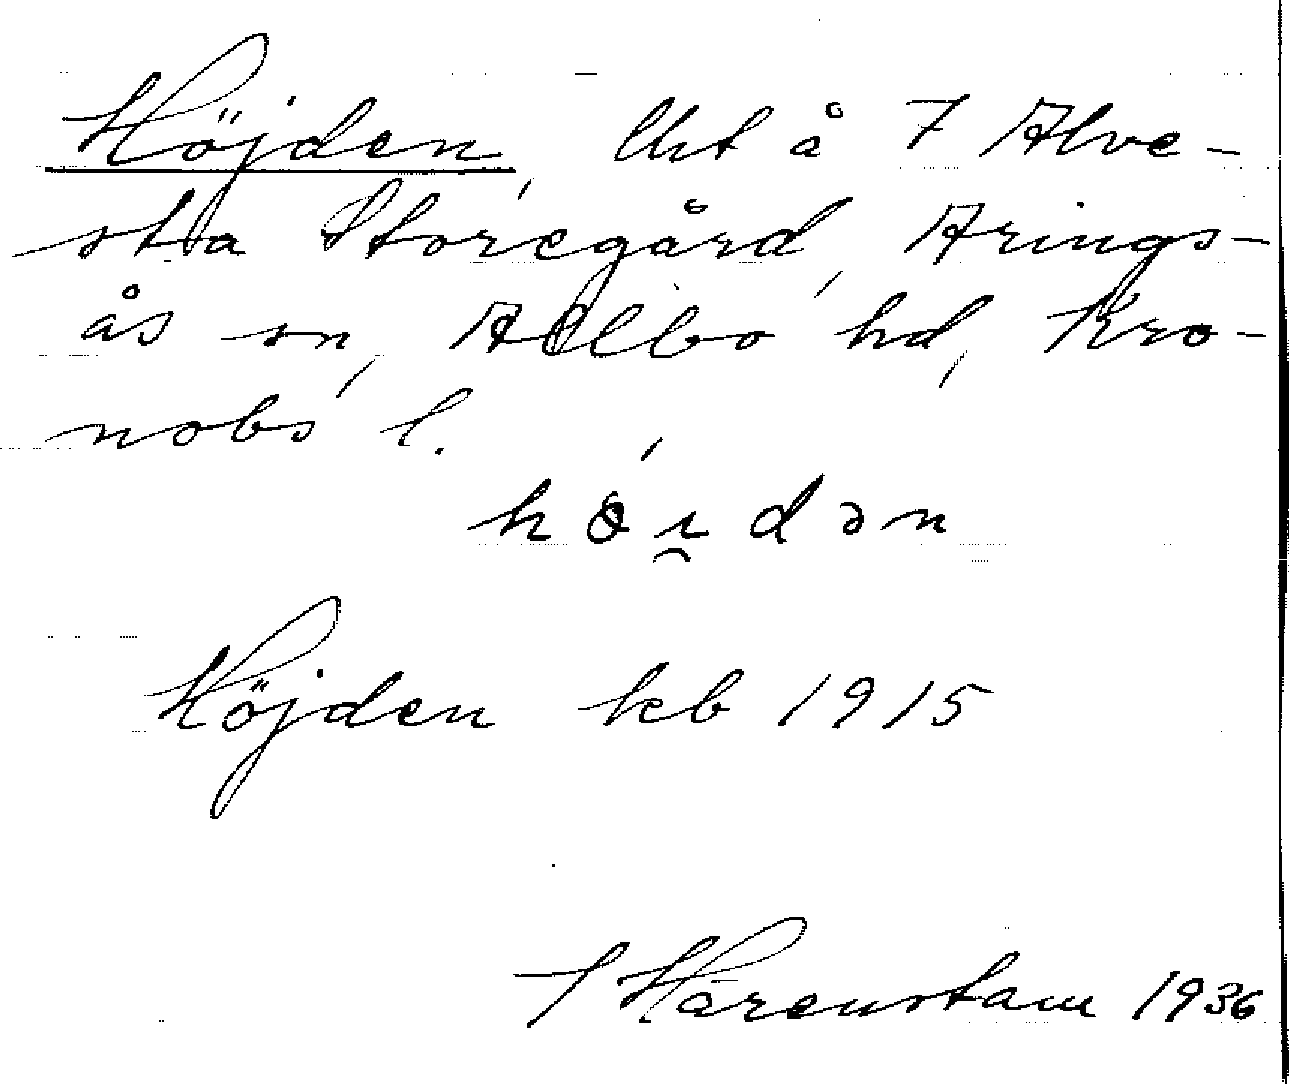 Höjden, lht å 7 Alve-
sta Storegård, Arings-
ås sn, Allbo hd, Kro-
nobs l.
hö́i̯dən
Höjden keb 1915
Härenstam 1936